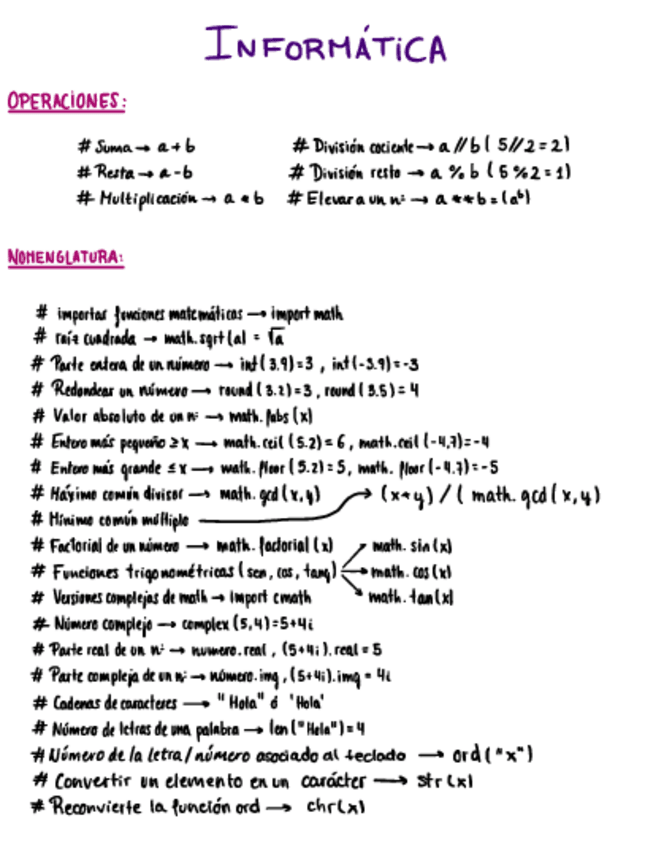 INFORMÁTICA
OPERACIONES:
# Suma → a + b
# División cociente → a // b ( 5//2 = 2)
# Resta → a - b
# División resto → a % b ( 5 % 2 = 1)
# Multiplicación → a * b
# Elevar a un nº → a * * b = (aᵇ)
NOMENGLATURA:
# importar funciones matemáticas → import math
# raíz cuadrada → math.sqrt(a) = √a
# Parte entera de un número → int( 3.9)=3 , int(-3.9)=-3
# Redondear un número → round ( 3.2)=3 , round ( 3.5) = 4
# Valor absoluto de un nº → math. fabs (x)
# Entero más pequeño ≥ x → math.ceil (5.2) = 6 , math.ceil (-4.7)=-4
# Entero más grande ≤ x → math. floor ( 5.2) = 5, math. floor (-4.7) = -5
# Máximo común divisor → math. gcd (x, y)
# Mínimo común múltiple → (x*y) / ( math. gcd (x, y)
# Factorial de un número → math. factorial (x)
# Funciones trigonométricas ( sen, cos, tang) → math. sin (x)
→ math. cos (x)
→ math. tan (x)
# Versiones complejas de math → Import cmath
# Número complejo → complex (5,4)=5+4i
# Parte real de un nº → numero.real , (5+4i ).real = 5
# Parte compleja de un nº → número.img , (5+4i).img = 4i
# Cadenas de caracteres → " Hola" ó 'Hola'
# Número de letras de una palabra → len ("Hola") = 4
# Número de la letra / número asociado al teclado → ord ( "x" )
# Convertir un elemento en un carácter → str (x)
# Reconvierte la función ord → chr(x)